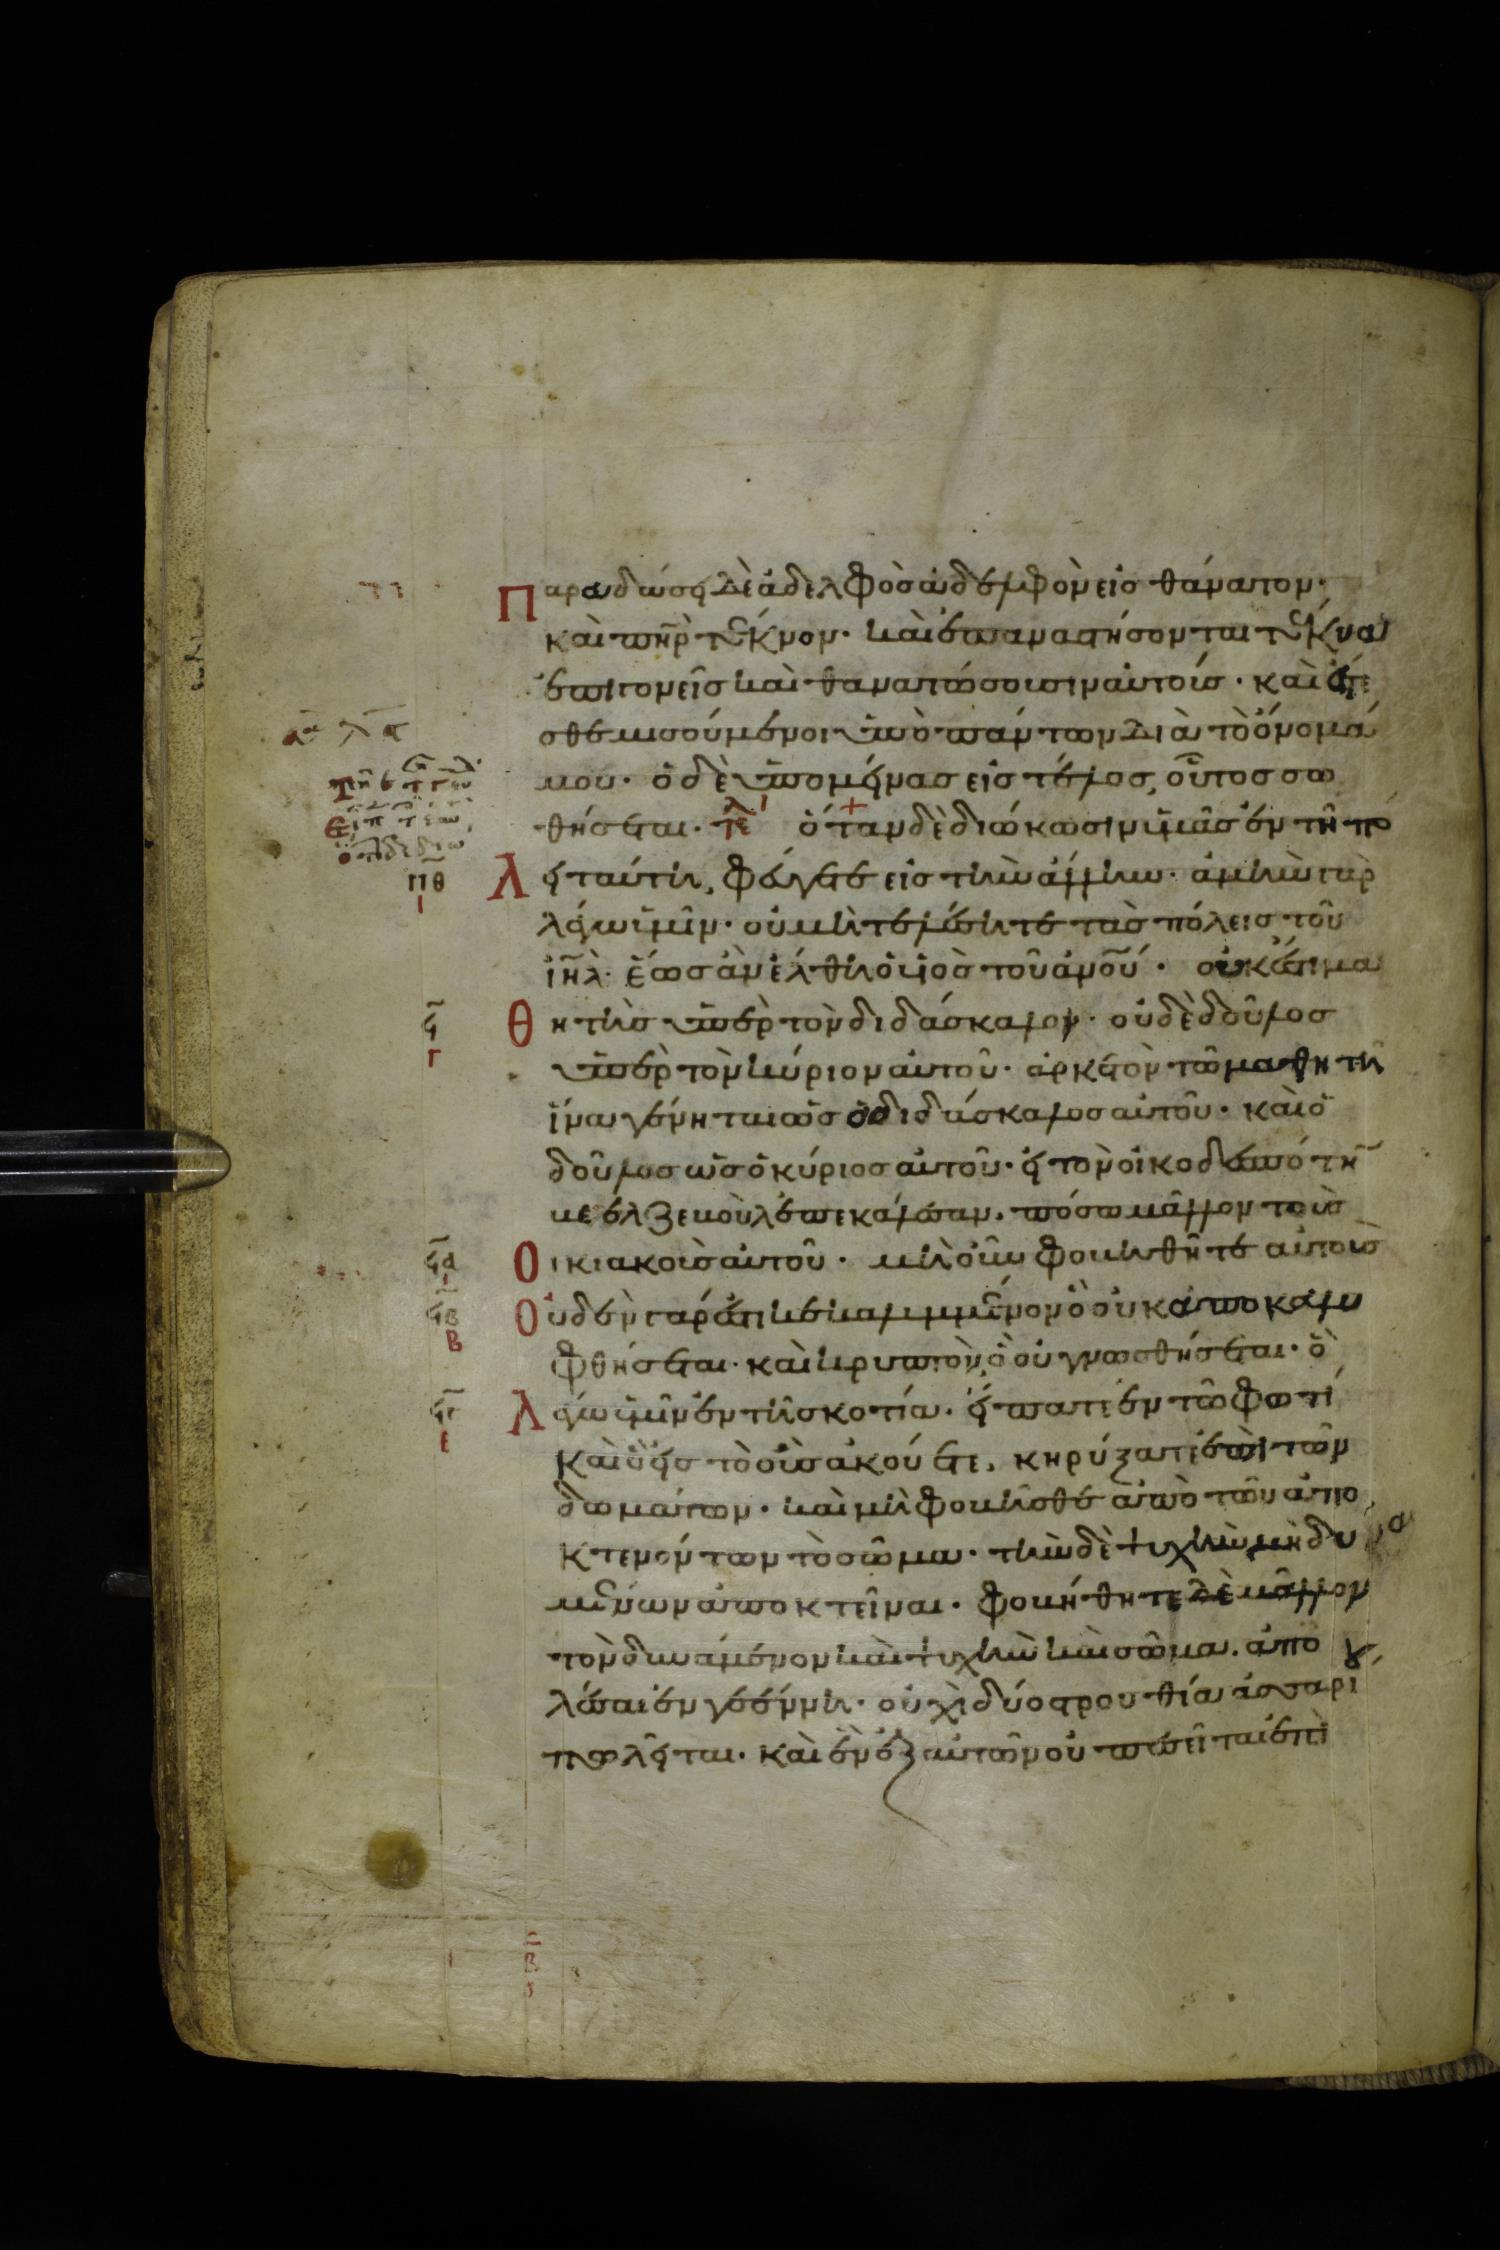 Παραδώσει δὲ ἀδελφὸς ἀδελφὸν εἰς θάνατον·
καὶ πη̅ρ τέκνον· καὶ ἐπαναστήσονται τέκνα
ἐπι γονεῖς καὶ θανατώσουσιν αὐτούς· καὶ ἔσε
σθε μισούμενοι ὑπὸ πάντων διὰ τὸ ὄνομά
μου· ὁ δὲ ὑπομείνας εἰς τέλος, οὗτος σω
θήσεται· τε̅λ ὅταν δὲ διώκωσιν ὑμᾶς ἐν τῆ πό
λει ταύτη, φεύγετε εἰς τὴν ἄλλην· ἀμὴν γὰρ
λέγω ὑμῖν· οὐ μὴ τελέσητε τὰς πόλεις τοῦ
ιη̅λ· ἕως ἂν ἔλθη ὁ υἱὸς τοῦ αν̅ου· οὐκ ἔστι μα
θητὴς ὑπὲρ τὸν διδάσκαλον· οὐδὲ δοῦλος
ὑπὲρ τὸν κύριον αὐτοῦ· ἀρκετὸν τῶ μαθητῆ
ἵνα γένηται ὡς ὁ διδάσκαλος αὐτοῦ· καὶ ὁ
δοῦλος ὡς ὁ κύριος αὐτοῦ· εἰ τὸν οἰκοδεσπότη̅
βεελζεβοὺλ ἐπεκάλεσαν, πόσω μᾶλλον τοὺς
οἰκιακοὺς αὐτοῦ· μὴ οὖν φοβηθῆτε αὐτοὺς
Οὐδὲν γάρ ἐστι κεκαλυμμένον ὃ οὐκ ἀποκαλυ
φθήσεται· καὶ κρυπτὸν, ὃ οὐ γνωσθήσεται· ὃ
λέγω ὑμῖν ἐν τῆ σκοτία· εἴπατε ἐν τῶ φωτί
καὶ ὃ εἰς τὸ οὖς ἀκούετε, κηρύξατε ἐπὶ τῶν
δωμάτων· καὶ μὴ φοβῆσθε ἀπὸ τῶν ἀπο
κτενόντων τὸ σῶμα· τὴν δὲ ψυχὴν μὴ δυνα
μένων ἀποκτεῖναι· φοβήθητε δὲ μᾶλλον
τὸν δυνάμενον καὶ ψυχὴν καὶ σῶμα. ἀπο
λέσαι ἐν γεέννη· οὐχὶ δύο στρουθία ἀσσαρί
πωλεῖται· καὶ ἓν ἐξ αὐτῶν οὐ πεσεῖται ἐπὶ
πθ
ι
ϟ
γ
ϟα
ϟβ
β
ϟγ
ε